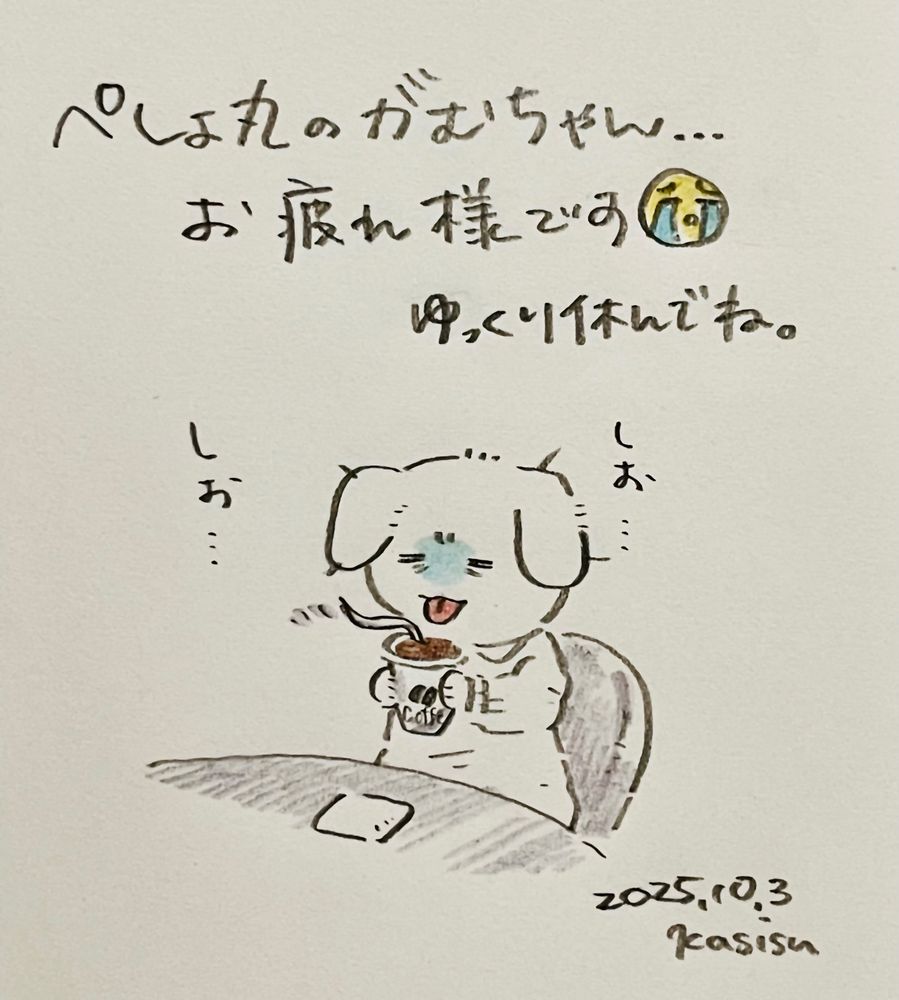 ぺしょ丸のがむちゃん…
お疲れ様です😭
ゆっくり休んでね。
しお…
しお…
Coffe
2025.10.3
kasisu